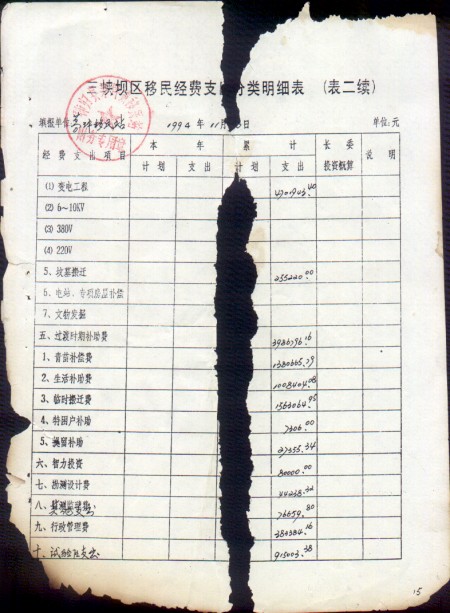 三峡坝区移民经费支出分类明细表 (表二续)
填报单位: 移民站 1994年11月 日 单位:元
经费支出项目 本年 累计 长委投资概算 说明
计划 支出 计划 支出
(1) 变电工程 4701943.40
(2) 6~10KV
(3) 380V
(4) 220V
5、坟墓搬迁 255220.00
6、电站、专项房屋补偿
7、文物发掘
五、过渡时期补助费 3986796.16
1、青苗补偿费 1380665.79
2、生活补助费 1008404.08
3、临时搬迁费 1563064.95
4、特困户补助 7306.00
5、提留补助 27355.34
六、智力投资 80000.00
七、勘测设计费 44238.32
八、 76659.80
九、行政管理费 380384.16
十、试验区支出 915003.38
15